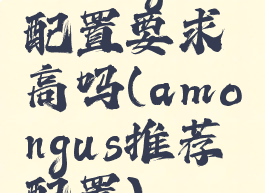 配置要求
高吗(amo
ngus推荐
配置)